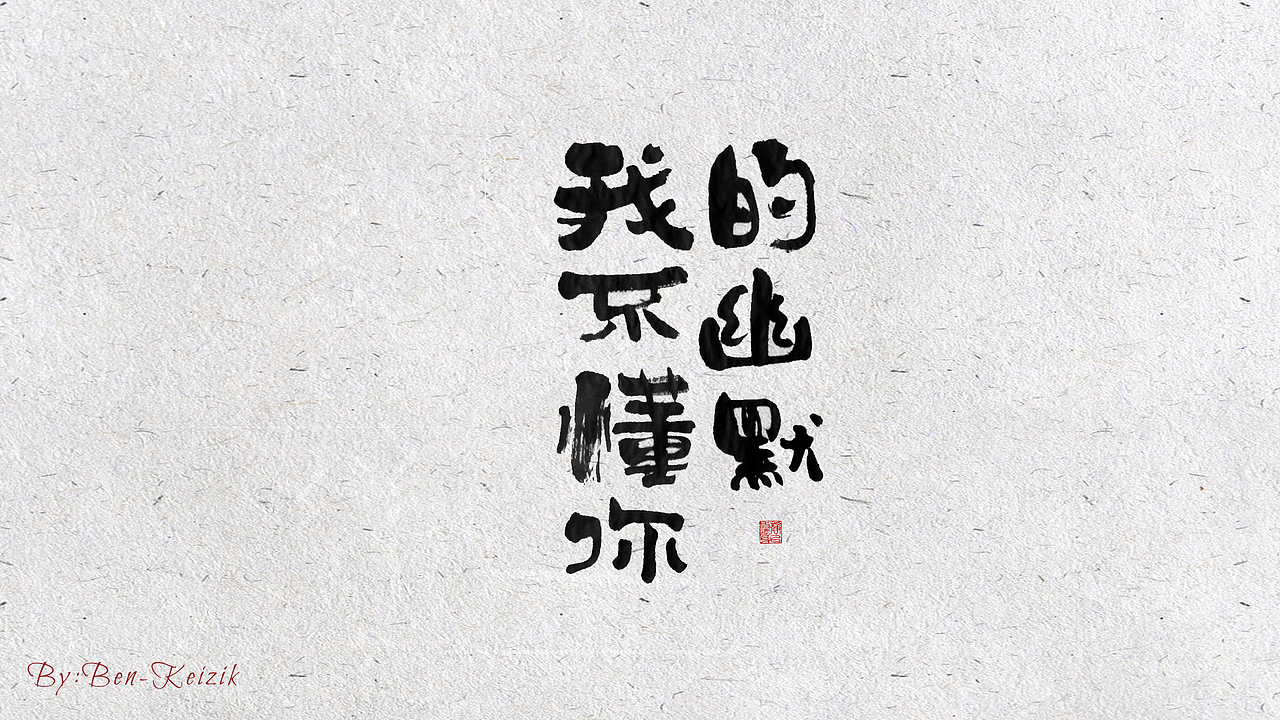 我不懂你
的幽默
By:Ben-Keizik